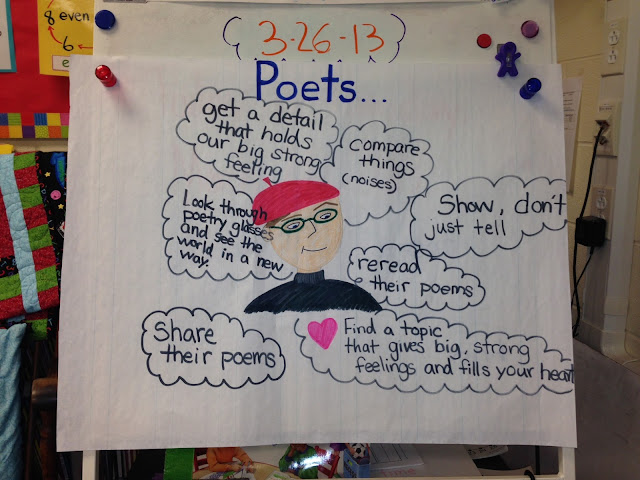 8 even
6
e
{3-26-13}
Poets...
get a detail
that holds
our big strong
feeling
compare
things
(noises)
Show, don't
just tell
Look through
poetry glasses
and see the
world in a new
way.
reread
their poems
Share
their poems
Find a topic
that gives big, strong
feelings and fills your heart